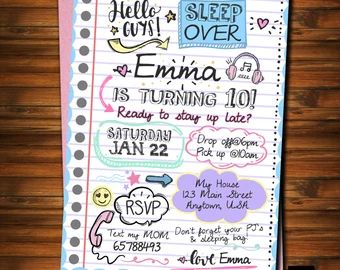 Hello
GUYS!
SLEEP
OVER
Emma
IS TURNING 10!
Ready to stay up late?
SATURDAY
JAN 22
Drop off@6pm
Pick up @10am
My House
123 Main Street
Anytown, U.S.A
RSVP
Text my MOM
65788493
Don't forget your PJ's
& sleeping bag!
love Emma